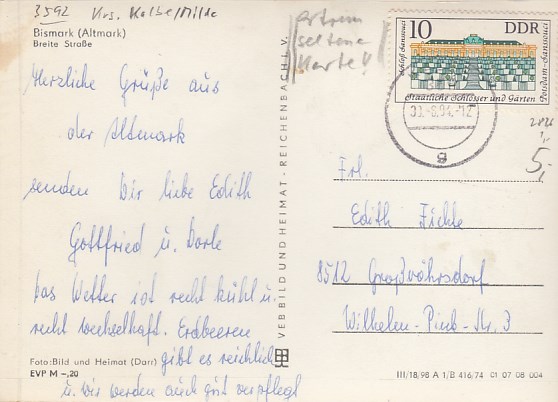 3592 Krs. Kalbe/Milde
Bismark (Altmark)
Breite Straße
Herzliche Grüße aus
der Altmark
senden Dir liebe Edith
Gottfried u. Dorle
Das Wetter ist recht kühl u.
recht wechselhaft. Erdbeeren
gibt es reichlich
u. wir werden auch gut verpflegt
Foto: Bild und Heimat (Darr)
EVP M –,20
VEB BILD UND HEIMAT · REICHENBACH I. V.
extrem
seltene
Karte!
10 DDR
Schloß Sanssouci
Potsdam-Sanssouci
Staatliche Schlösser und Gärten
g
5,-
Frl.
Edith Fichte
8512 Großröhrsdorf
Wilhelm-Pieck-Str. 3
III/18/98 A 1/B 416/74 01 07 08 004